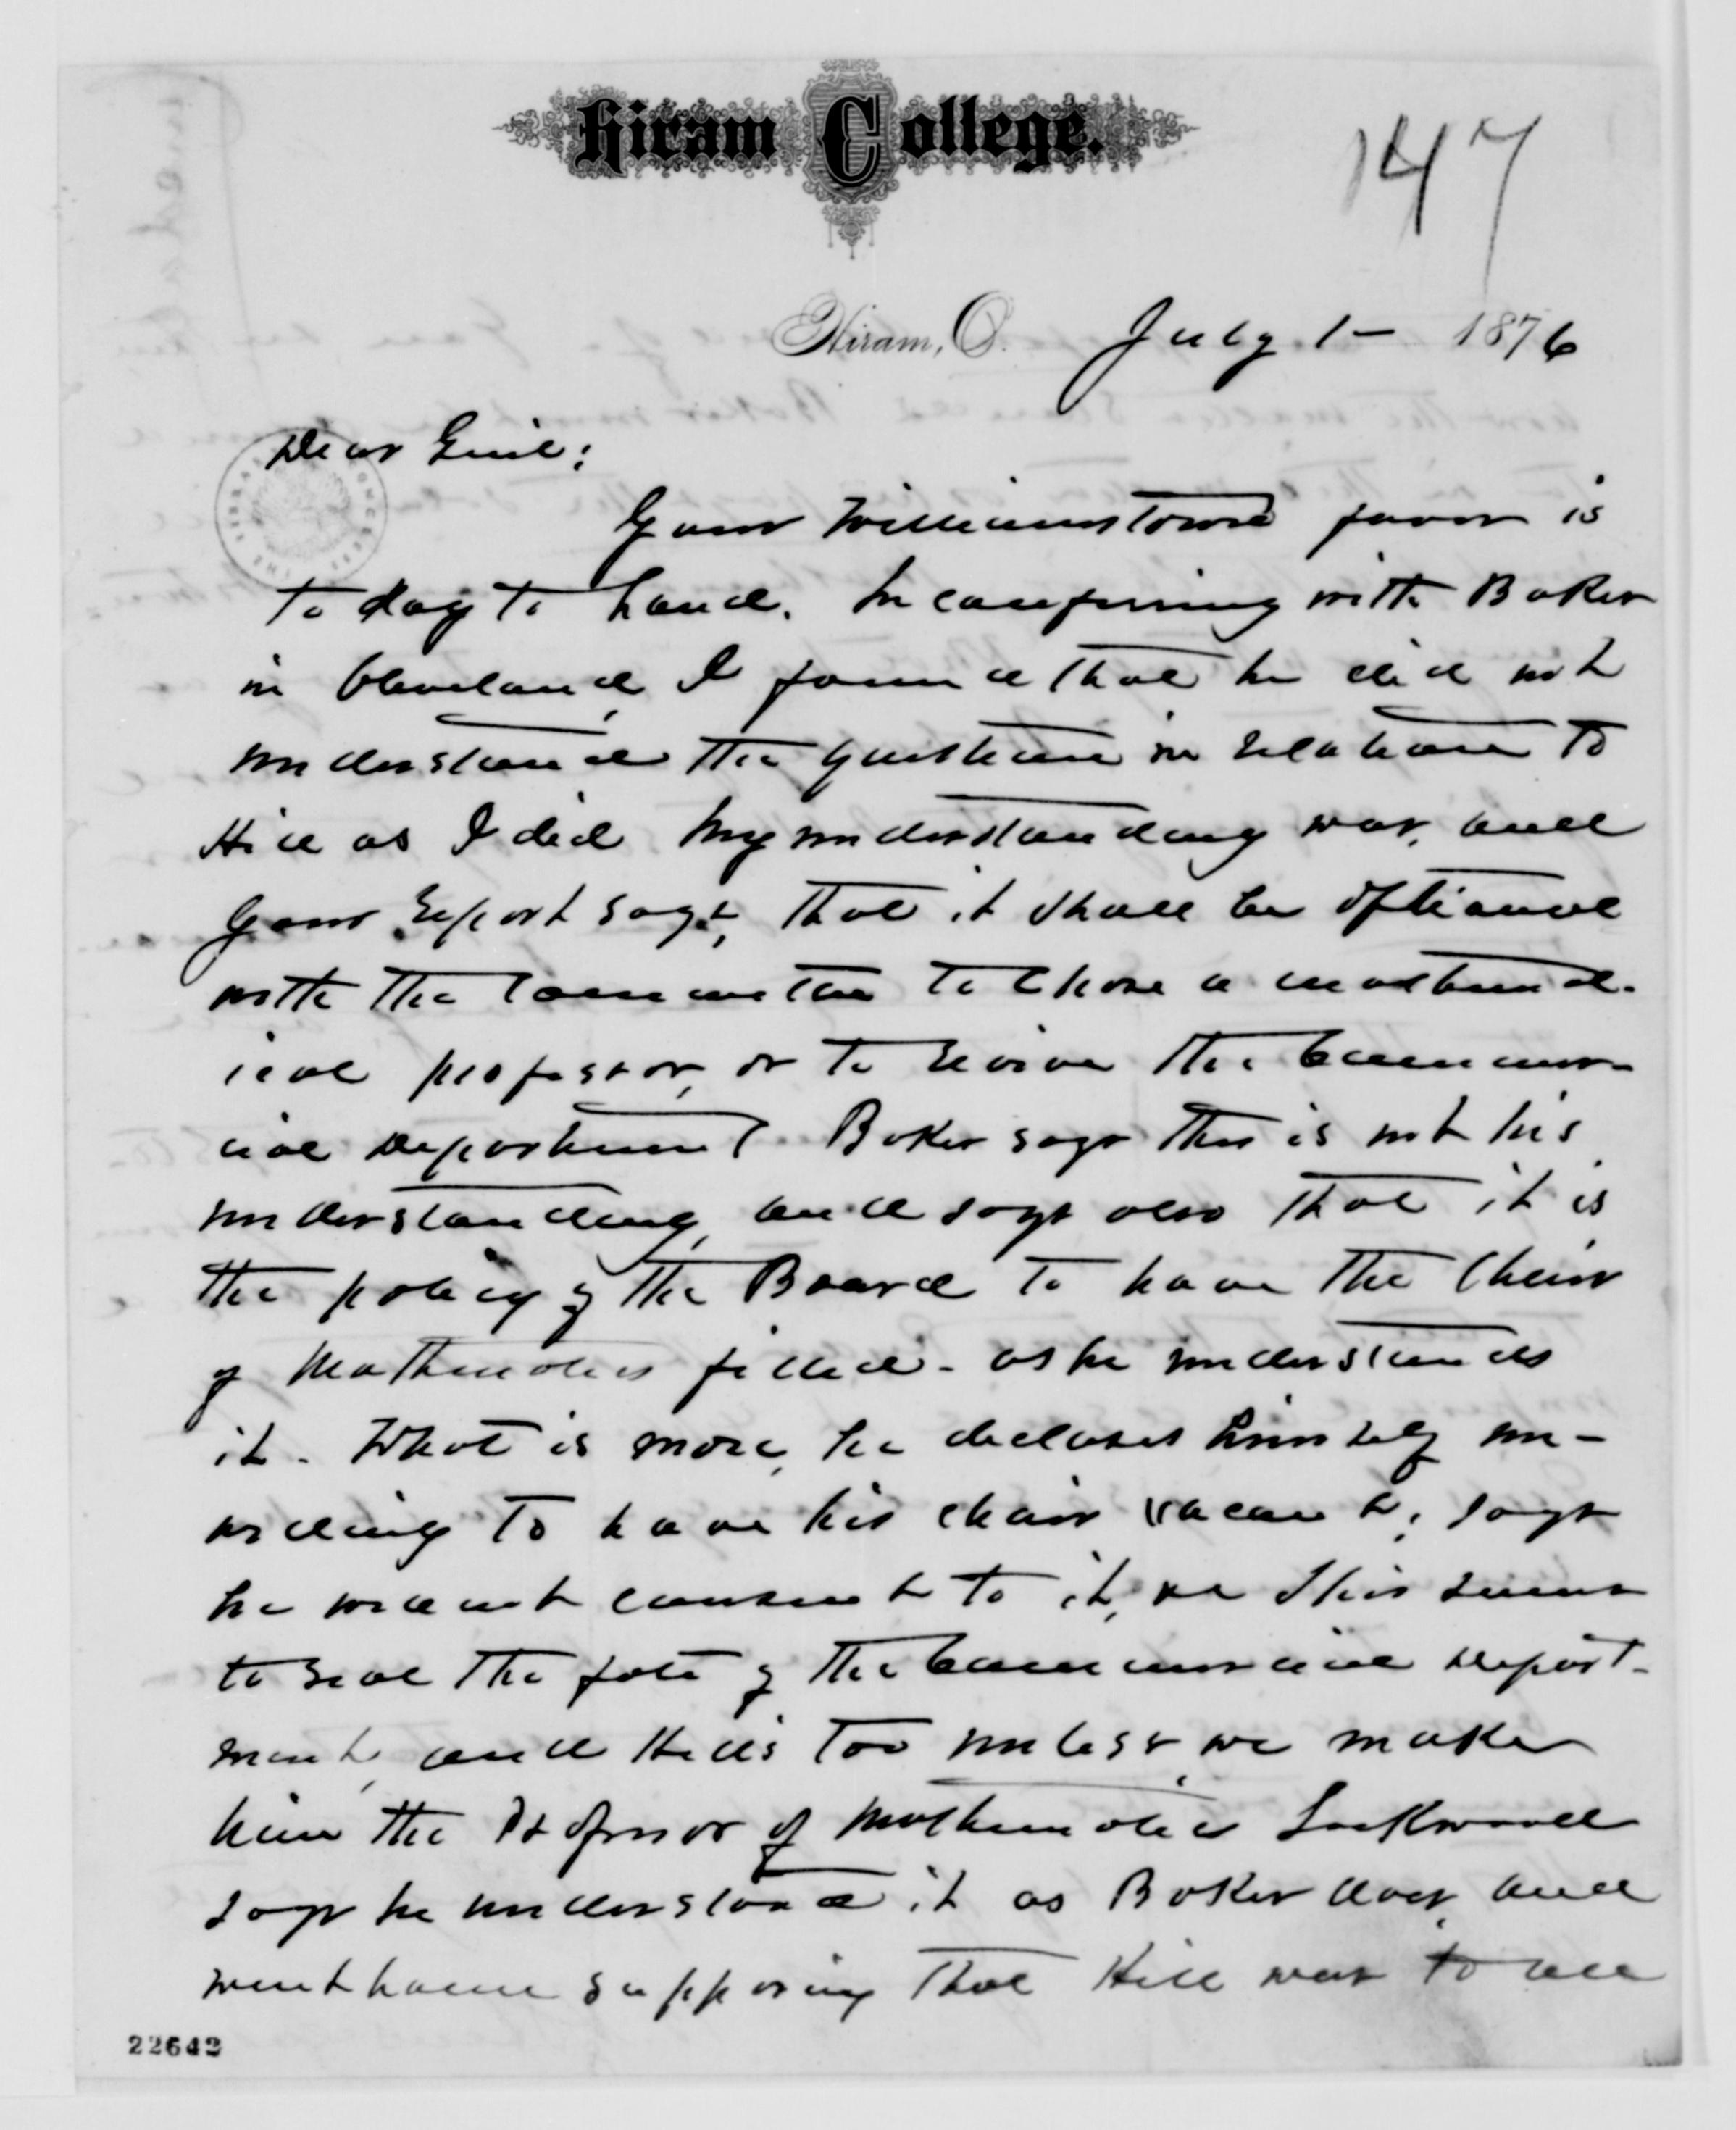 Hiram College.
147
Hiram, O. July 1- 1876
Dear Genl:
Your Williamstown favor is
to day to hand. In conferring with Baker
in Cleveland, I found that he did not
understand the question in relation to
Hill as I did My understanding was, and
your report says, that it shall be optional
with the Committee to chose a mathemat-
ical professor, or to revive the Commer-
cial Department. Baker says this is not his
understanding, and says also that it is
the policy of the Board to have the Chair
of Mathematics filled - as he understands
it. What is more, he declares himself un-
willing to have his chair vacant; says
he will not consent to it, so this seems
to seal the fate of the Commercial Depart-
ment, and Hill's too unless we make
him the Professor of Mathematics Lockwood
says he understood it as Baker does, and
went home supposing that Hill was to all
22642